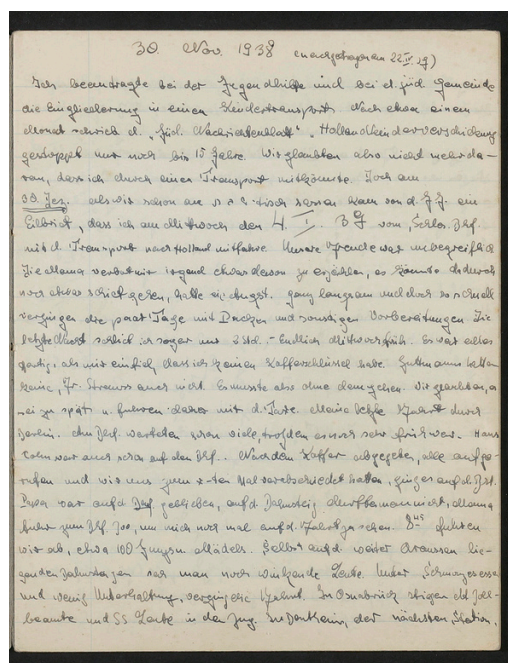 30. Nov. 1938 (nachgetragen am 22.IV.39)
Ich beantragte bei der Jugendhilfe und bei d. jüd. Gemeinde
die Eingliederung in einen Kindertransport. Nach etwa einem
Monat schrieb d. „Jüd. Nachrichtenblatt". Hollandkinderverschickung
gestoppt nur noch bis 15 Jahre. Wir glaubten also nicht mehr da-
ran, dass ich durch einen Transport mitkönnte. Doch am
30. Dez. als wir schon am tisch sassen kam von d. J.H. ein
Eilbrief, dass ich am Mittwoch den 4. I. 39 vom Schles. Bhf.
mit d. Transport nach Holland mitfahre. Unsere Freude war unbegreiflich
Die Mama verbat mir irgend etwas davon zu erzählen, es könnte dadurch
noch etwas schief gehen, hatte sie Angst. Ganz langsam und doch so schnell
vergingen die paar Tage mit Packen und sonstigen Vorbereitungen. Die
letzte Nacht schlief ich sogar nur 2 Std. - Endlich Mittwoch früh. Es war alles
fertig, als mir einfiel, dass ich keinen Kofferschlüssel habe. Guttmanns hatten
keine, Fr. Strauss auch nicht. Es musste also ohne dem gehen. Wir glaubten, es
sei zu spät u. fuhren daher mit d. Taxe. Meine letzte Fahrt durch
Berlin. Am Bhf. warteten schon viele, trotzdem es noch sehr früh war. Hans
Cohn war auch schon auf dem Bhf. Nachdem Koffer abgegeben, alle aufge-
rufen und wir uns zum x-ten Mal verabschiedet hatten, ging es auf d. Bst.
Papa war auf d. Bhf. geblieben, auf d. Bahnsteig durfte man nicht, Mama
fuhr zum Bhf. Zoo, um mich noch mal auf d. Fahrt zu sehen. fuhren
wir ab, etwa 100 Jungs u. Mädels. Selbst auf d. weiter draussen lie-
genden Bahnsteigen sah man noch winkende Leute. Unter
und wenig Unterhaltung, verging die Fahrt. In Osnabrück stiegen d. Zoll-
beamte und SS Leute in den Zug. In Bentheim, der nächsten Station,